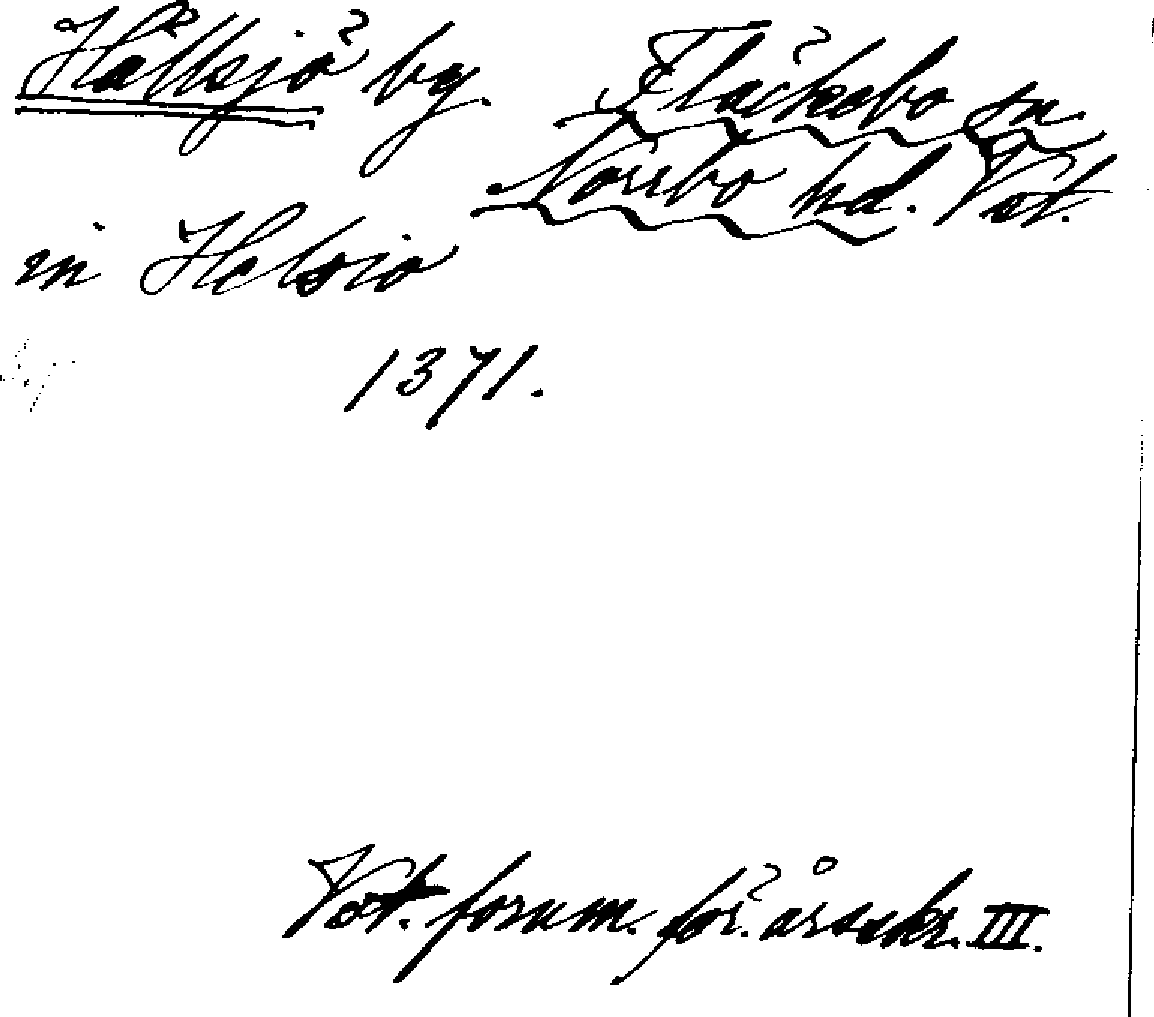 Hällsjö by. Fläckebo sn
Norrbo hd. Vst.
in Helsio
1371.
Vst. fornm. för. årsskr. III.